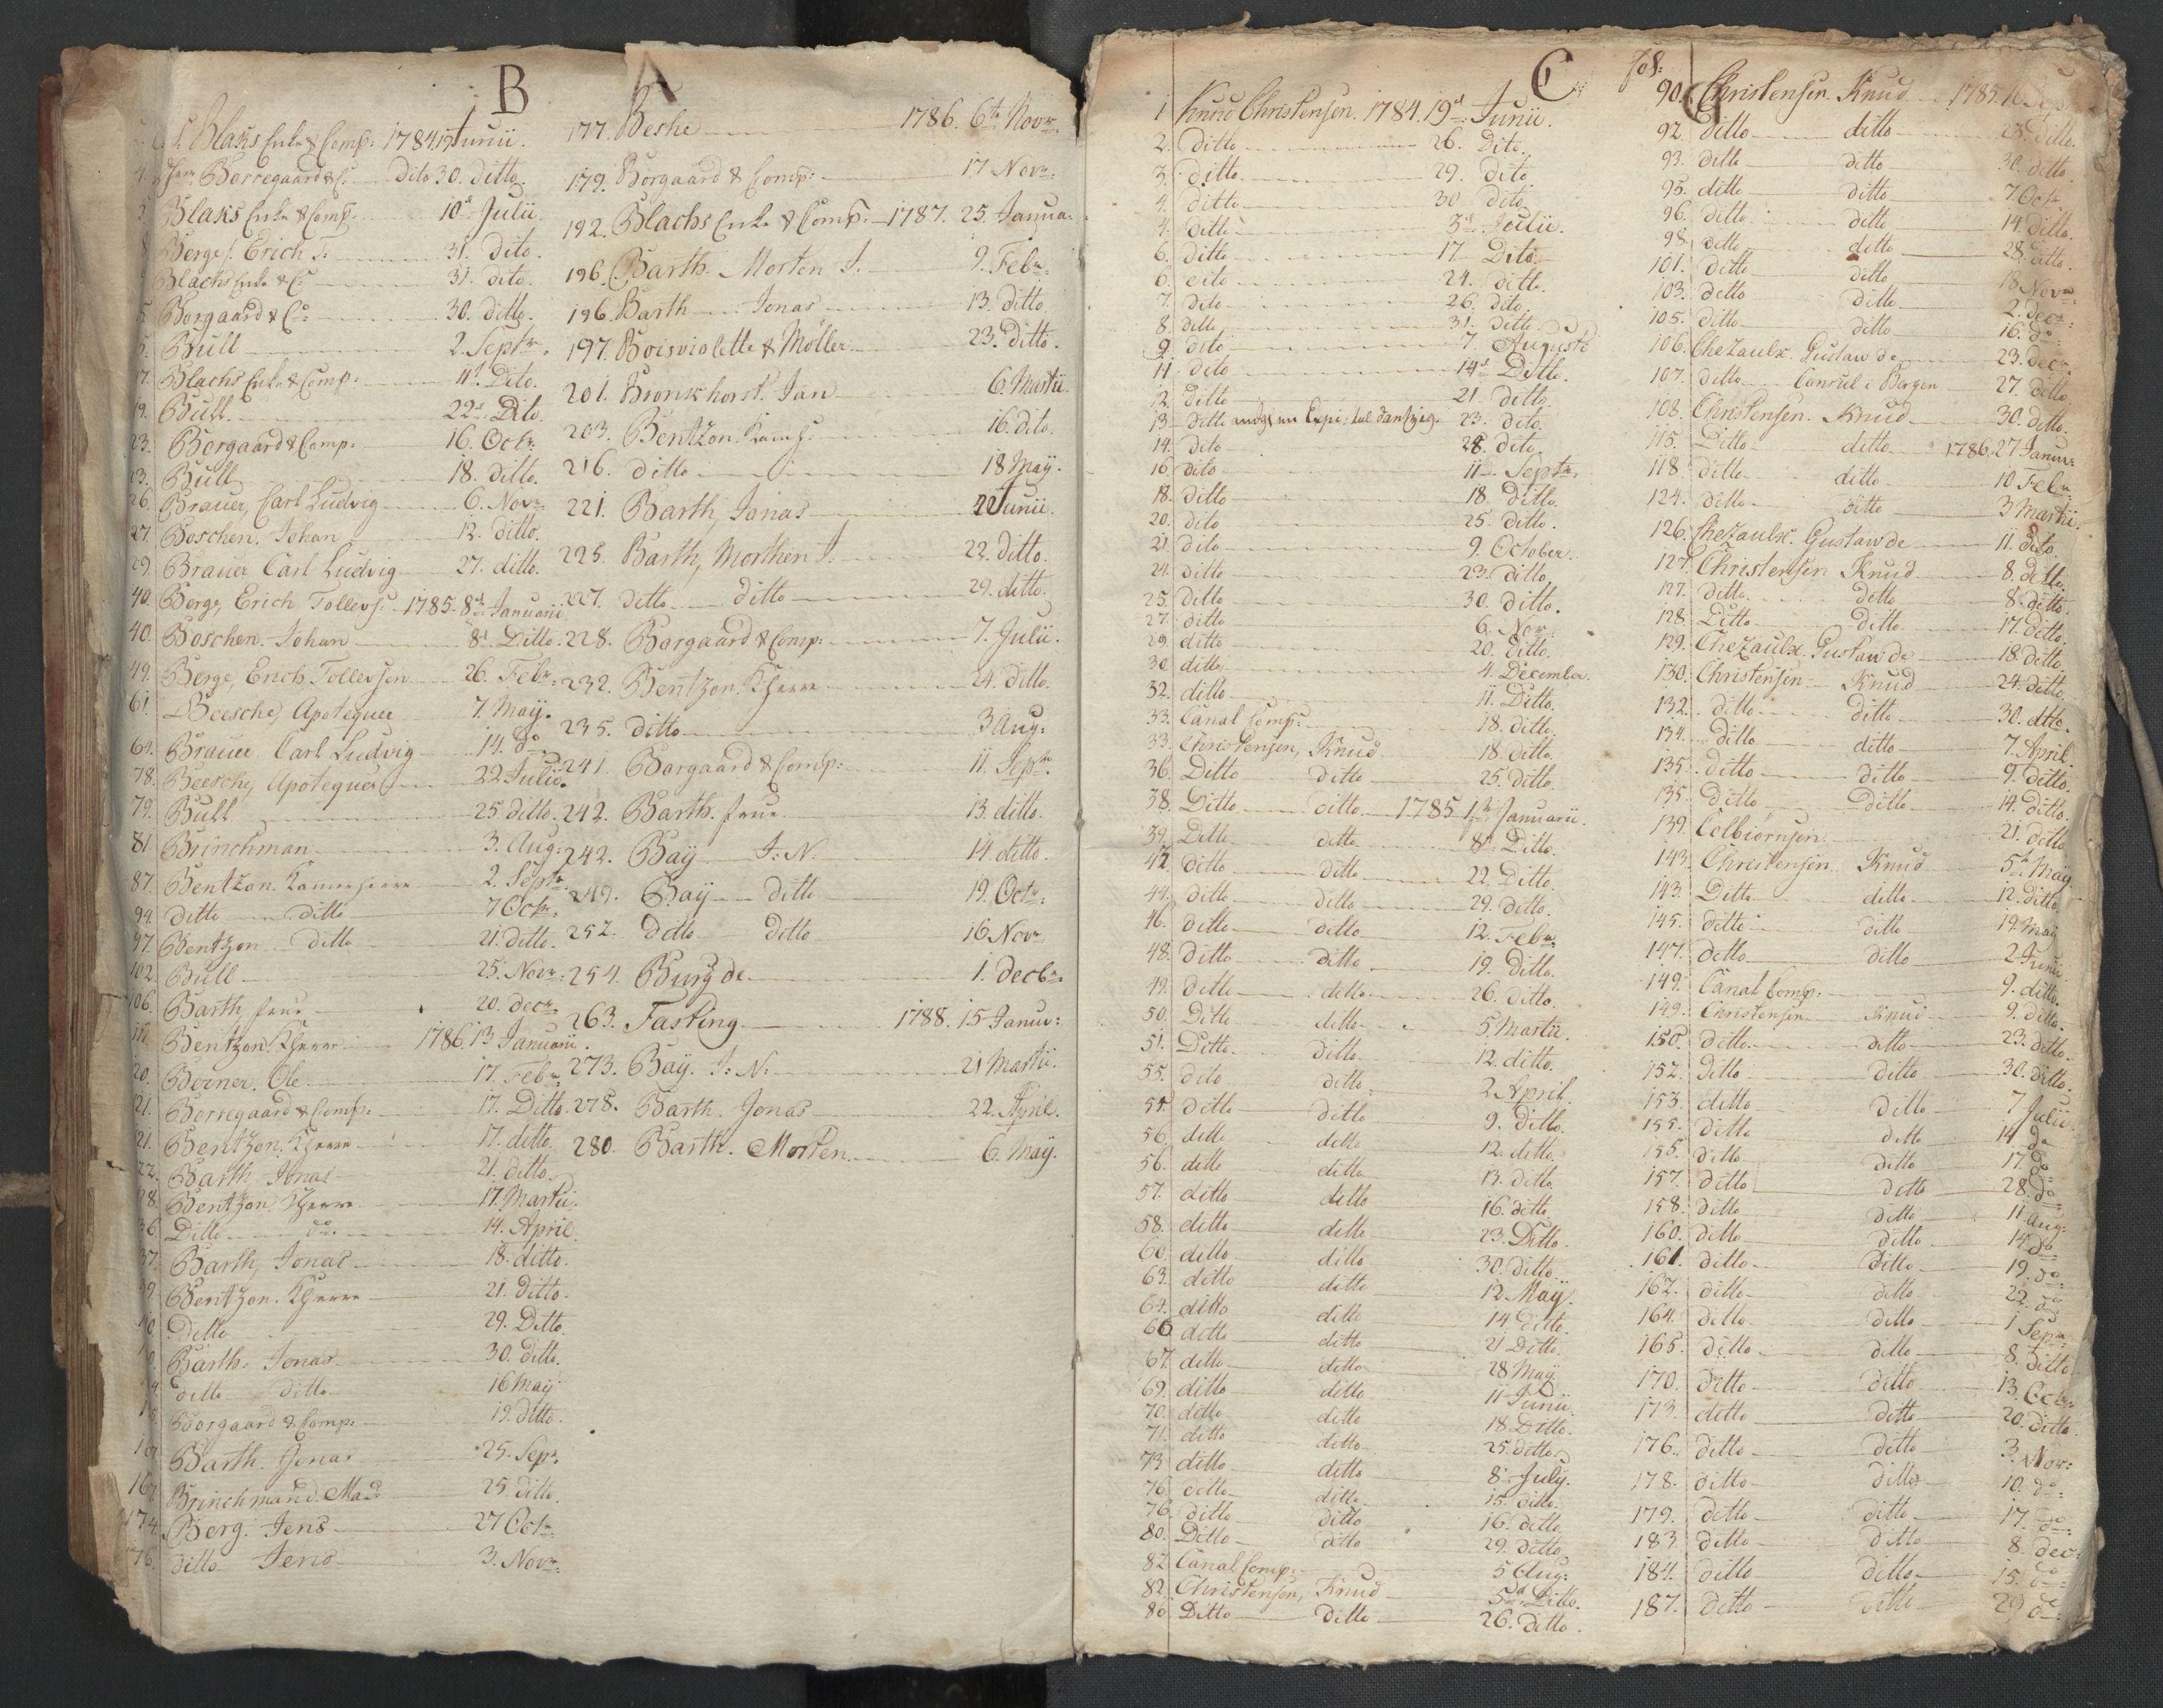 B
Blaks Enke & Comp: 1784. 19 Junii.
Borregaard & C: Dito 30. ditto.
Blaks Enke & Comp: 10d Julii.
Berge, Erich T: 31. Dito.
Blachs Enke & Co 31. dito.
Borgaard & Co: 30. ditto.
Bull 2. Septr.
Blachs Enke & Comp: 11d. Dito.
19. Bull 22d. Dito.
23. Borgaard & Comp: 16. Octr.
23. Bull 18. ditto.
26. Brauer, Carl Ludvig 6. Novr:
27. Boschen. Johan 12. ditto.
29. Brauer Carl Ludvig 27. ditto.
40. Berge, Erich Tollevs: 1785. 8d Januarii
40. Boschen. Johan 8d. Ditto.
49. Berge, Erich Tollevsen 26. Febr:
61. Beesche, Apotequer 7. May.
64. Brauer Carl Ludvig 14. do
78. Beesche, Apotequer 22 Julii.
79. Bull 25 ditto.
81. Brinchman 3. Aug:
87. Bentzon. Kamerherre 2. Septr
94. ditto ditto 7 Octr.
97. Bentzon ditto 21. ditto.
102. Bull 25. Novr:
106. Barth, frue 20. decr.
111. Bentzon. KHerre 1786. 13 Januarii.
20. Berner. Ole 17. Febr.
21. Borregaard & Comp: 17. Ditto.
21. Bentzon. KHerre 17. ditto.
22. Barth, Jonas 21. ditto.
28. Bentzon. KHerre 17. Martii.
36. Ditto do. 14. April.
37. Barth, Jonas 18. ditto.
Bentzon. KHerre 21. Ditto.
Ditto 29. Ditto.
Barth. Jonas 30. ditto.
ditto ditto 16 Maÿ
Borgaard & Comp: 19. ditto.
Barth. Jonas 25. Sepr.
167. Brinchmand. Mad: 25 ditto.
174. Berg. Jens 27 Octr.
176. ditto Jens 3. Novr:
177. Beshe 1786. 6te Novr:
179. Borgaard & Comp: 17 Novr:
192. Blachs Enke & Comp: 1787. 25. Janua:
196. Barth. Morten J. 9. Febr:
196. Barth Jonas 13. ditto
197. Boisviolette & Möller 23. ditto.
201. Bronkhorst. Jan 6. Martii.
203. Bentzon. Kamh: 16. dito.
216. ditto 18 Maÿ.
221. Barth, Jonas 22 Junii.
225. Barth, Morthen J. 22. ditto.
227. ditto ditto 29. ditto.
228. Borgaard & Comp: 7. Julii.
232. Bentzon. KHerre 24. ditto.
235. ditto 3 Aug:
241. Borgaard & Comp: 11. Septr.
242. Barth. frue 13. ditto.
242. Baÿ J: N: 14. ditto.
249. Baÿ ditto 19. Octr:
252. ditto ditto 16 Novr
254. Burg de 1. Decbr:
263. Fasting 1788. 15 Januv:
273. Baÿ. J: N: 21 Martii.
278. Barth. Jonas 22. April.
280. Barth. Morten 6. Maÿ.
C
1 Knud Christensen. 1784. 19d: Junii.
2. Ditto 26. Dito.
3. ditto. 29. dito
4. ditto 30. dito
4. ditto 3d. Julii.
6. ditto 17. Dito.
6. dito 24. ditto.
7. dito 26. dito.
8. ditto 31. ditto.
9. dito 7. Augusti
11. dito 14d. Ditto.
12. Ditto 21. ditto.
13. ditto 23. dito.
14. dito 28. dito.
16. dito 11. Septr.
18. ditto 18. ditto.
20. dito 25. ditto.
21. dito 9. October.
24. ditto 23. ditto.
25. ditto 30. ditto.
27. ditto 6. Novr.
29. ditto 20. ditto.
30. ditto 4. December.
32. ditto 11. Ditto.
33. Canal Comp: 18. ditto.
33. Christensen, Knud 18. ditto.
36. Ditto ditto 25. ditto.
38. Ditto ditto 1785 1te Januarii.
39. Ditto ditto 8d. Ditto.
42. ditto ditto 22. Ditto.
44. ditto ditto 29. ditto.
46. ditto ditto 12. Febr.
48. ditto ditto 19. ditto.
49. ditto ditto 26. ditto.
50. Ditto ditto 5. Martii.
51. Ditto ditto 12. ditto.
55. dito ditto 2 April.
55. ditto ditto 9. ditto.
56. ditto ditto 12. ditto.
56. ditto ditto 13. ditto.
57. ditto ditto 16. ditto.
58. ditto ditto 23. Ditto.
60. ditto ditto 30. ditto.
63. ditto ditto 12 Maÿ.
64. ditto ditto 14. ditto.
66 ditto ditto 21 Ditto.
67. ditto ditto 28 May
69. ditto ditto 11 Junii.
70. ditto ditto 18. Ditto.
71. ditto ditto 25. ditto.
73 ditto ditto 8. Julÿ.
76. ditto ditto 15. ditto.
76. ditto ditto 16. ditto.
80. Ditto ditto 29. ditto
82 Canal Comp: 5 Aug:
82. Christensen, Knud 5d. Ditto.
86 Ditto ditto 26. ditto.
fol:
90. Christensen. Knud 1785. 16 Sepr
92. ditto ditto 23. ditto.
93. ditto ditto 30. ditto.
95. ditto ditto 7. Octr.
96. ditto ditto 14. ditto.
98. ditto ditto 28. ditto.
101. ditto ditto 18 Novr
103. ditto ditto 2. decr:
105. ditto ditto 16. do
106. Chezaulx. Gustaw de 23. decr.
107. ditto Consul i Bergen 27. ditto.
108. Christensen. Knud 30. ditto.
115. Ditto ditto 1786. 27 Januv:
118 ditto ditto 10 Febr
124. ditto ditto 3 Martii.
126. Chezaulx. Gustaw de 11. dito.
127. Christensen Knud 8. ditto.
127. ditto ditto 8. ditto.
128. Ditto ditto 17. ditto.
129. Chezaulx. Gustaw de 18. ditto.
130. Christensen Knud 24. ditto.
132. ditto ditto 30. ditto.
134. ditto ditto 7. April.
135. ditto ditto 9. ditto.
135. ditto ditto 14. ditto.
139. Colbiørnsen 21. ditto
143. Christensen Knud 5te Maÿ
143. Ditto ditto 12. ditto.
145. ditto ditto 19. Maÿ
147. ditto ditto 2 Junii
149. Canal Comp: 9. ditto.
149. Christensen Knud 9. ditto.
150. ditto ditto 23. ditto.
152. ditto ditto 30. ditto.
153. ditto ditto 7 Julii.
155. ditto ditto 14. do
155. ditto ditto 17. do
157. ditto ditto 28. do
158. ditto ditto 11 Aug:
160. ditto ditto 14. do
161. ditto ditto 19. do
162. ditto ditto 22. do
164. ditto ditto 1 Sepr.
165. ditto ditto 8. ditto
170. ditto ditto 13. Octr.
173. ditto ditto 20. ditto.
176. ditto ditto 3. Nov:
178. ditto ditto 10. do:
179. ditto ditto 17. do:
183. ditto ditto 8. dec:
184. ditto ditto 15. do:
187. ditto ditto 29 do: